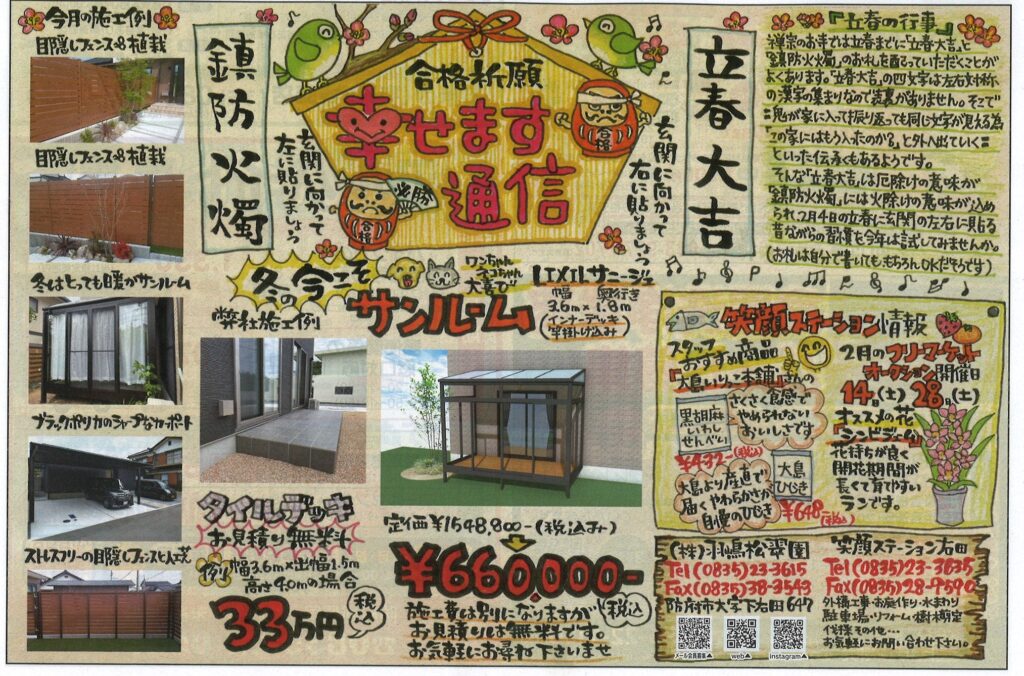 今月の施工例
目隠しフェンス&植栽
目隠しフェンス&植栽
冬はとっても日暖かサンルーム
ブラックポリカのシャープなカーポート
ストレスフリーの目隠しフェンスと人工芝
鎮防火燭
玄関に向かって
左に貼りましょう
合格祈願
幸せます
通信
必勝
合格
合格
玄関に向かって
右に貼りましょう
立春大吉
『立春の行事』
禅宗のお寺では立春までに「立春大吉」と
「鎮防火燭」のお札を配っていただくことが
よくあります。「立春大吉」の四文字は左右対称
の漢字の集まりなので表裏がありません。そこで
鬼が家に入って振り返っても同じ文字が見える為
「この家にはもう入ったのか?」と外へ出ていく
といった伝承もあるようです。
そんな「立春大吉」は厄除けの意味が
「鎮防火燭」には火除けの意味が込め
られ、2月4日の立春に玄関の左右に貼る
昔ながらの習慣を今年は試してみませんか。
(お札は自分で書いても、もちろんOKだそうです)
冬の今こそ
サンルーム
ワンちゃん
ネコちゃん
大喜び
LIXILサニージュ
幅 奥行き
3.6m×1.8m
(インナーデッキ
竿掛け込み)
弊社施工例
タイルデッキ
お見積り無料
例) 幅3.6m×出幅1.5m
高さ4.0mの場合
33万円
税込
定価¥1548,800-(税込み)
¥660,000-
税込
施工費は別になりますが
お見積りは無料です。
お気軽にお尋ね下さいませ
笑顔ステーション情報
スタッフ
おすすめ商品
『大島いりこ本舗』さんの
黒胡麻
いわし
せんべい
さくさく食感で
やめられない
おいしさです
¥432-(税込)
大島より産直で
届くやわらかさが
自慢のひじき
大島
ひじき
¥648(税込)
2月のフリーマーケット
オークション開催日
14日(土) 28日(土)
オススメの花
『シンビディーム』
花持ちが良く
開花期間が
長くて育てやすい
ランです。
(株)羽嶋松翠園
Tel(0835)23-3615
Fax(0835)38-3543
防府市大字下右田647
メール会員募集▲
web▲
instagram▲
笑顔ステーション右田
Tel(0835)23-3835
Fax(0835)28-9590
外構工事・お庭作り・水まわり
駐車場・リフォーム・樹木剪定
伐採その他…
お気軽にお問い合わせ下さい。